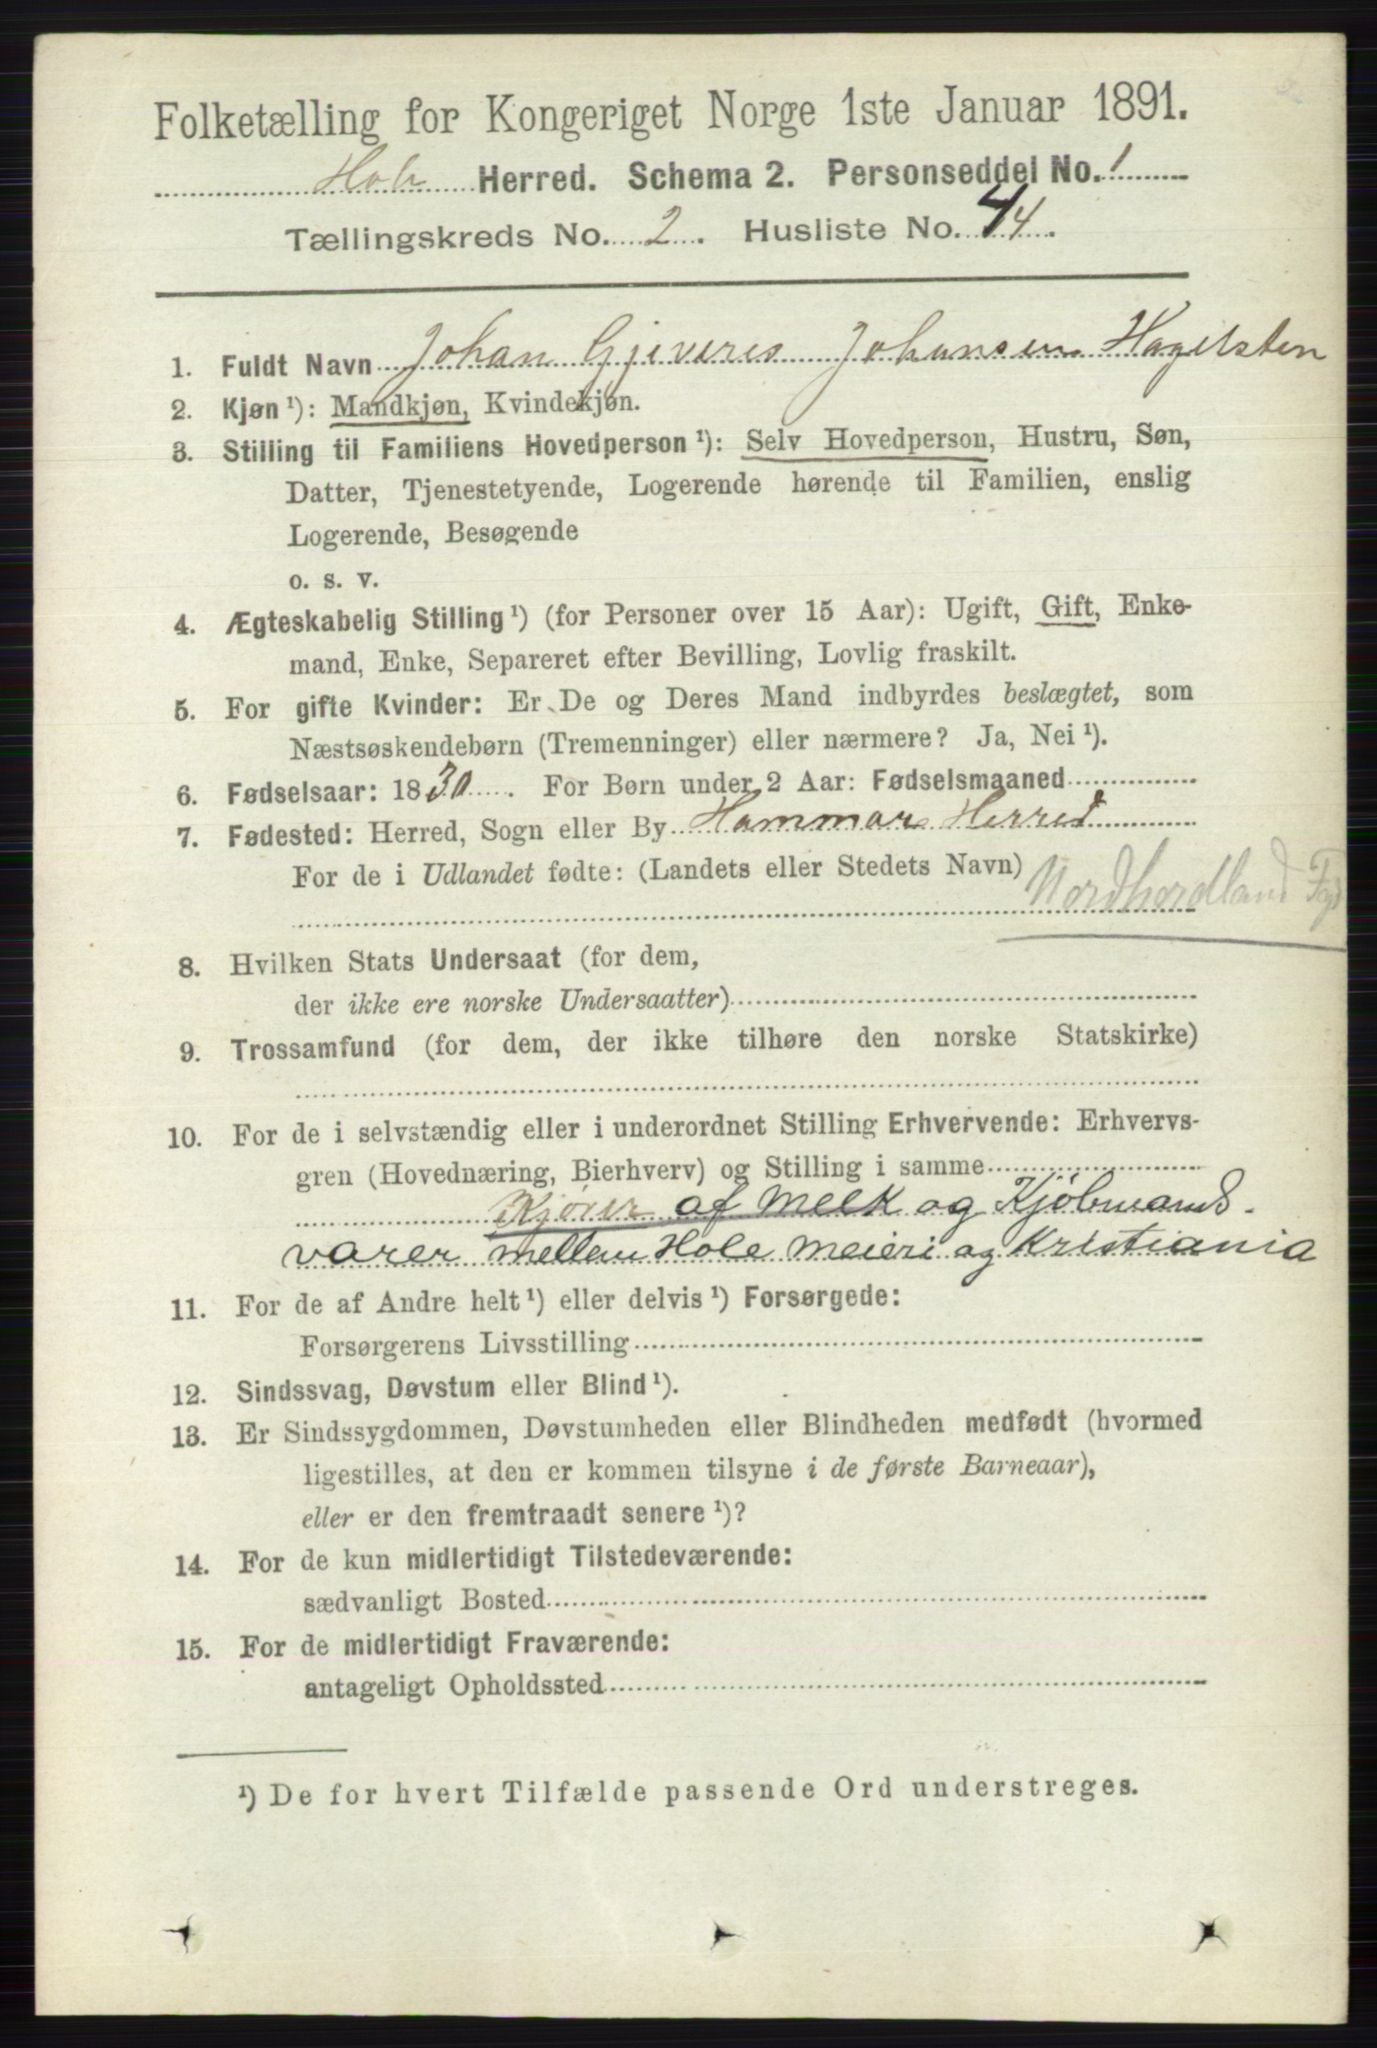 Folketælling for Kongeriget Norge 1ste Januar 1891.
Hole Herred. Schema 2. Personseddel No. 1
Tællingskreds No. 2. Husliste No. 44.
1. Fuldt Navn Johan Johansen Hagelsten
2. Kjøn ¹): Mandkjøn, Kvindekjøn.
3. Stilling til Familiens Hovedperson ¹): Selv Hovedperson, Hustru, Søn,
Datter, Tjenestetyende, Logerende hørende til Familien, enslig
Logerende, Besøgende
o. s. v.
4. Ægteskabelig Stilling ¹) (for Personer over 15 Aar): Ugift, Gift, Enke-
mand, Enke, Separeret efter Bevilling, Lovlig fraskilt.
5. For gifte Kvinder: Er De og Deres Mand indbyrdes beslægtet, som
Næstsøskendebørn (Tremenninger) eller nærmere? Ja, Nei ¹).
6. Fødselsaar: 1830. For Børn under 2 Aar: Fødselsmaaned
7. Fødested: Herred, Sogn eller By Hammars Herred
For de i Udlandet fødte: (Landets eller Stedets Navn)
Nordhordland
8. Hvilken Stats Undersaat (for dem,
der ikke ere norske Undersaatter)
9. Trossamfund (for dem, der ikke tilhøre den norske Statskirke)
10. For de i selvstændig eller i underordnet Stilling Erhvervende: Erhvervs-
gren (Hovednæring, Bierhverv) og Stilling i samme
Kjører af Melk og Kjøbmands-
varer mellem Hole Meieri og Kristiania
11. For de af Andre helt ¹) eller delvis ¹) Forsørgede:
Forsørgerens Livsstilling
12. Sindssvag, Døvstum eller Blind ¹).
13. Er Sindssygdommen, Døvstumheden eller Blindheden medfødt (hvormed
ligestilles, at den er kommen tilsyne i de første Barneaar),
eller er den fremtraadt senere ¹)?
14. For de kun midlertidigt Tilstedeværende:
sædvanligt Bosted
15. For de midlertidigt Fraværende:
antageligt Opholdssted
¹) De for hvert Tilfælde passende Ord understreges.